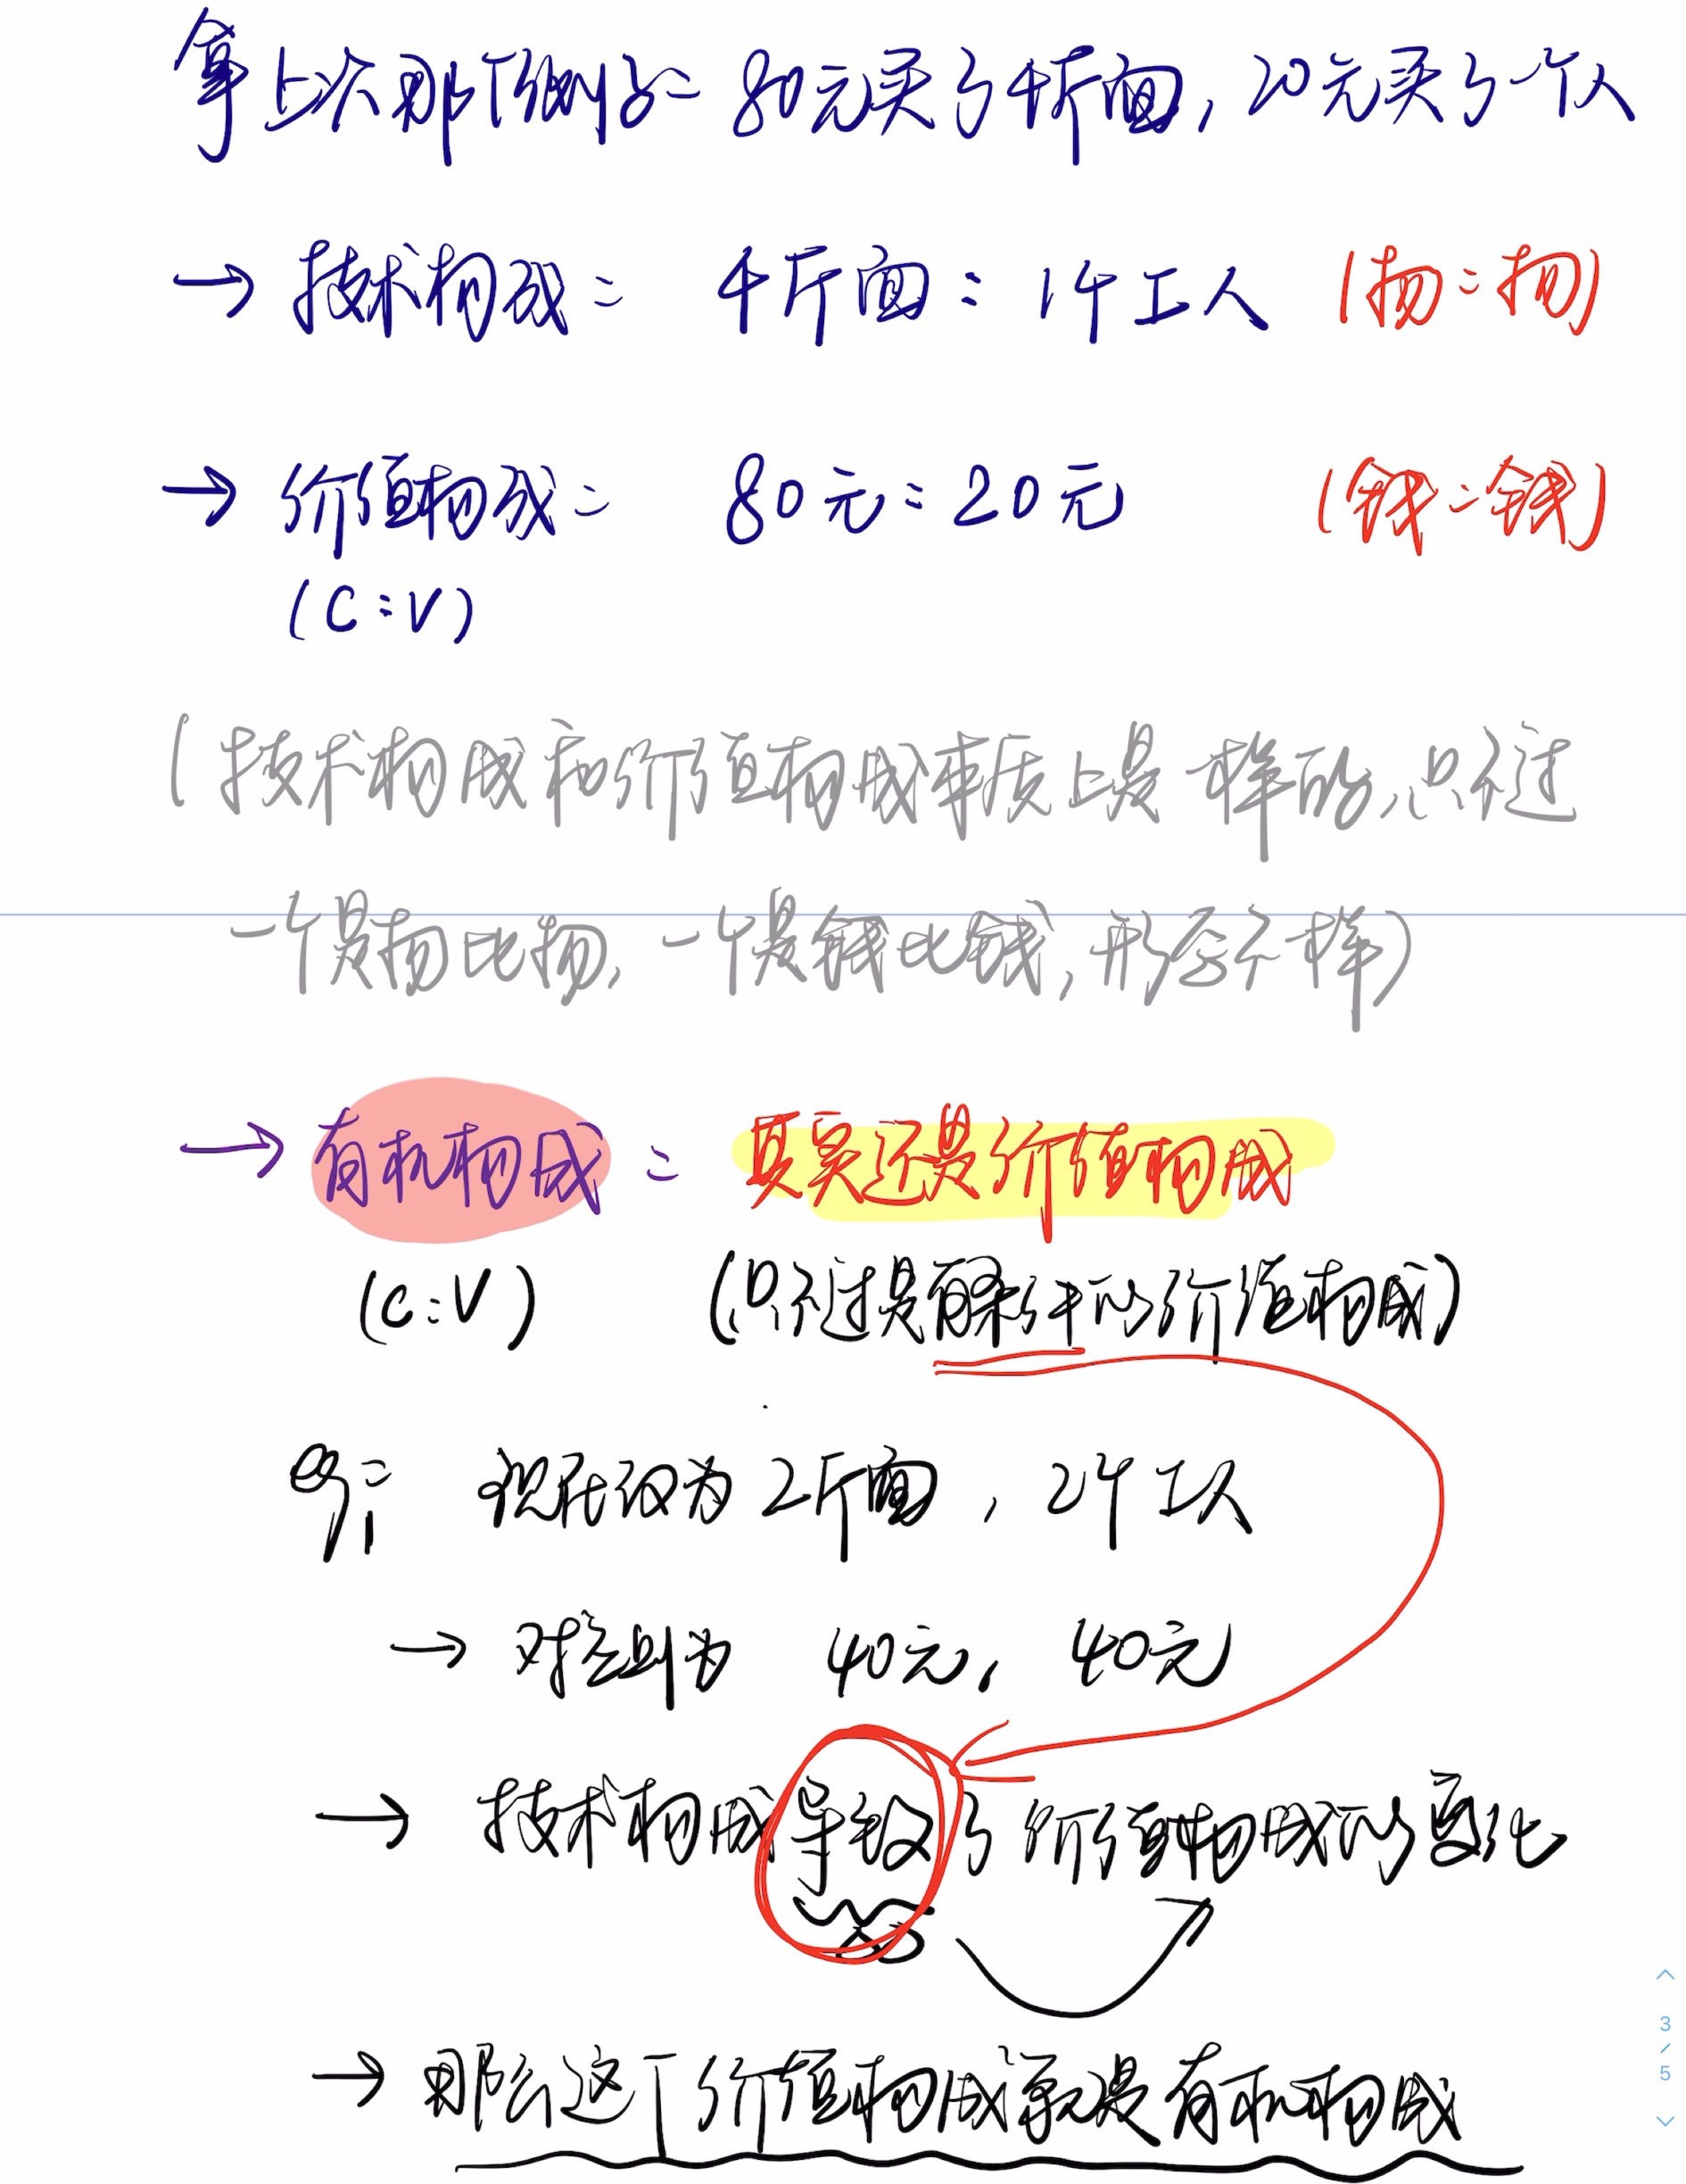 拿上次那个例子：80元买了4斤面，20元买了一个人
→ 技术构成： 4斤面：1个工人 (物：物)
→ 价值构成： 80元：20元 (钱：钱)
(C：V)
(技术构成和价值构成本质上是一样的，只不过
一个是物比物，一个是钱比钱，形态不一样)
→ 有机构成： 其实还是价值构成
(C：V) (只不过是特殊的价值构成)
eg： 现在设为2斤面，2个工人
→ 对应则为 40元，40元
→ 技术构成导致了价值构成的变化
→ 那么这个价值构成就是有机构成
3
/
5